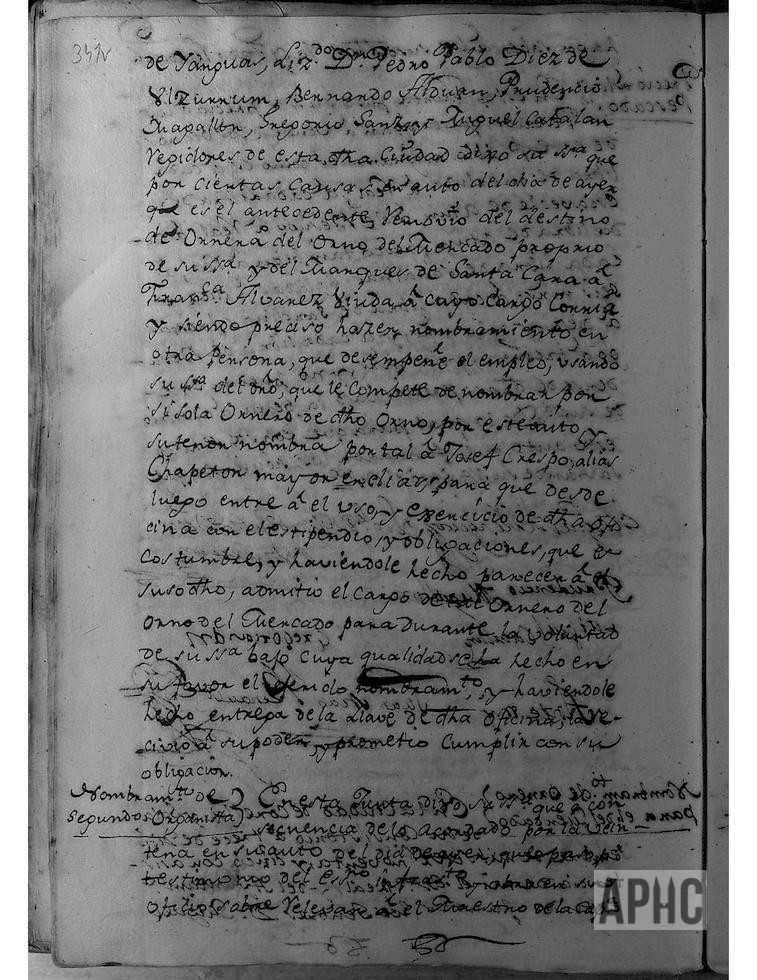 341v
de Yanguas, Liz.do Dn. Pedro Pablo Diez de
Ulzurrum, Bernardo Alduan, Prudencio
Gregorio Sanz, y Miguel Catalan
Regidores de esta dha Ciudad dixo su ssa que
por ciertas causas en auto del dia de ayer
que es el antecedente, removio del destino
de Ornera del Orno del Mercado proprio
de su ssa y del Marques de Santa Cara a
Fransca Alvarez Viuda a cuyo cargo corria
y siendo preciso hazer nombramiento en
otra Persona, que desempeñe el empleo, usando
su ssa del dro, que le compete de nombrar por
si sola Ornero de dho Orno, por este auto, y
su tenor nombra por tal a Josef Crespo, alias
Chapeton mayor en dias, para que desde
luego entre a el uso, y exercicio de dha ofi
cina con el estipendio, y obligaciones, que es
costumbre, y haviendole hecho parecer a el
susodho, admitio el cargo de tal Ornero del
Orno del Mercado para durante la voluntad
de su ssa bajo cuya qualidad se ha hecho en
su favor el referido nombramto, y haviendole
hecho entrega de la llave de dha oficina, la re-
civio a su poder, y prometio cumplir con su
obligacion.
Nombramto de
segundo Organista
En esta Junta dixo su ssa que a con
sequencia de lo acordado por la Vein
tena en su auto del dia de ayer,
testimonio del esno
oficio sobre relevar a el Maestro de la Capi
APHC